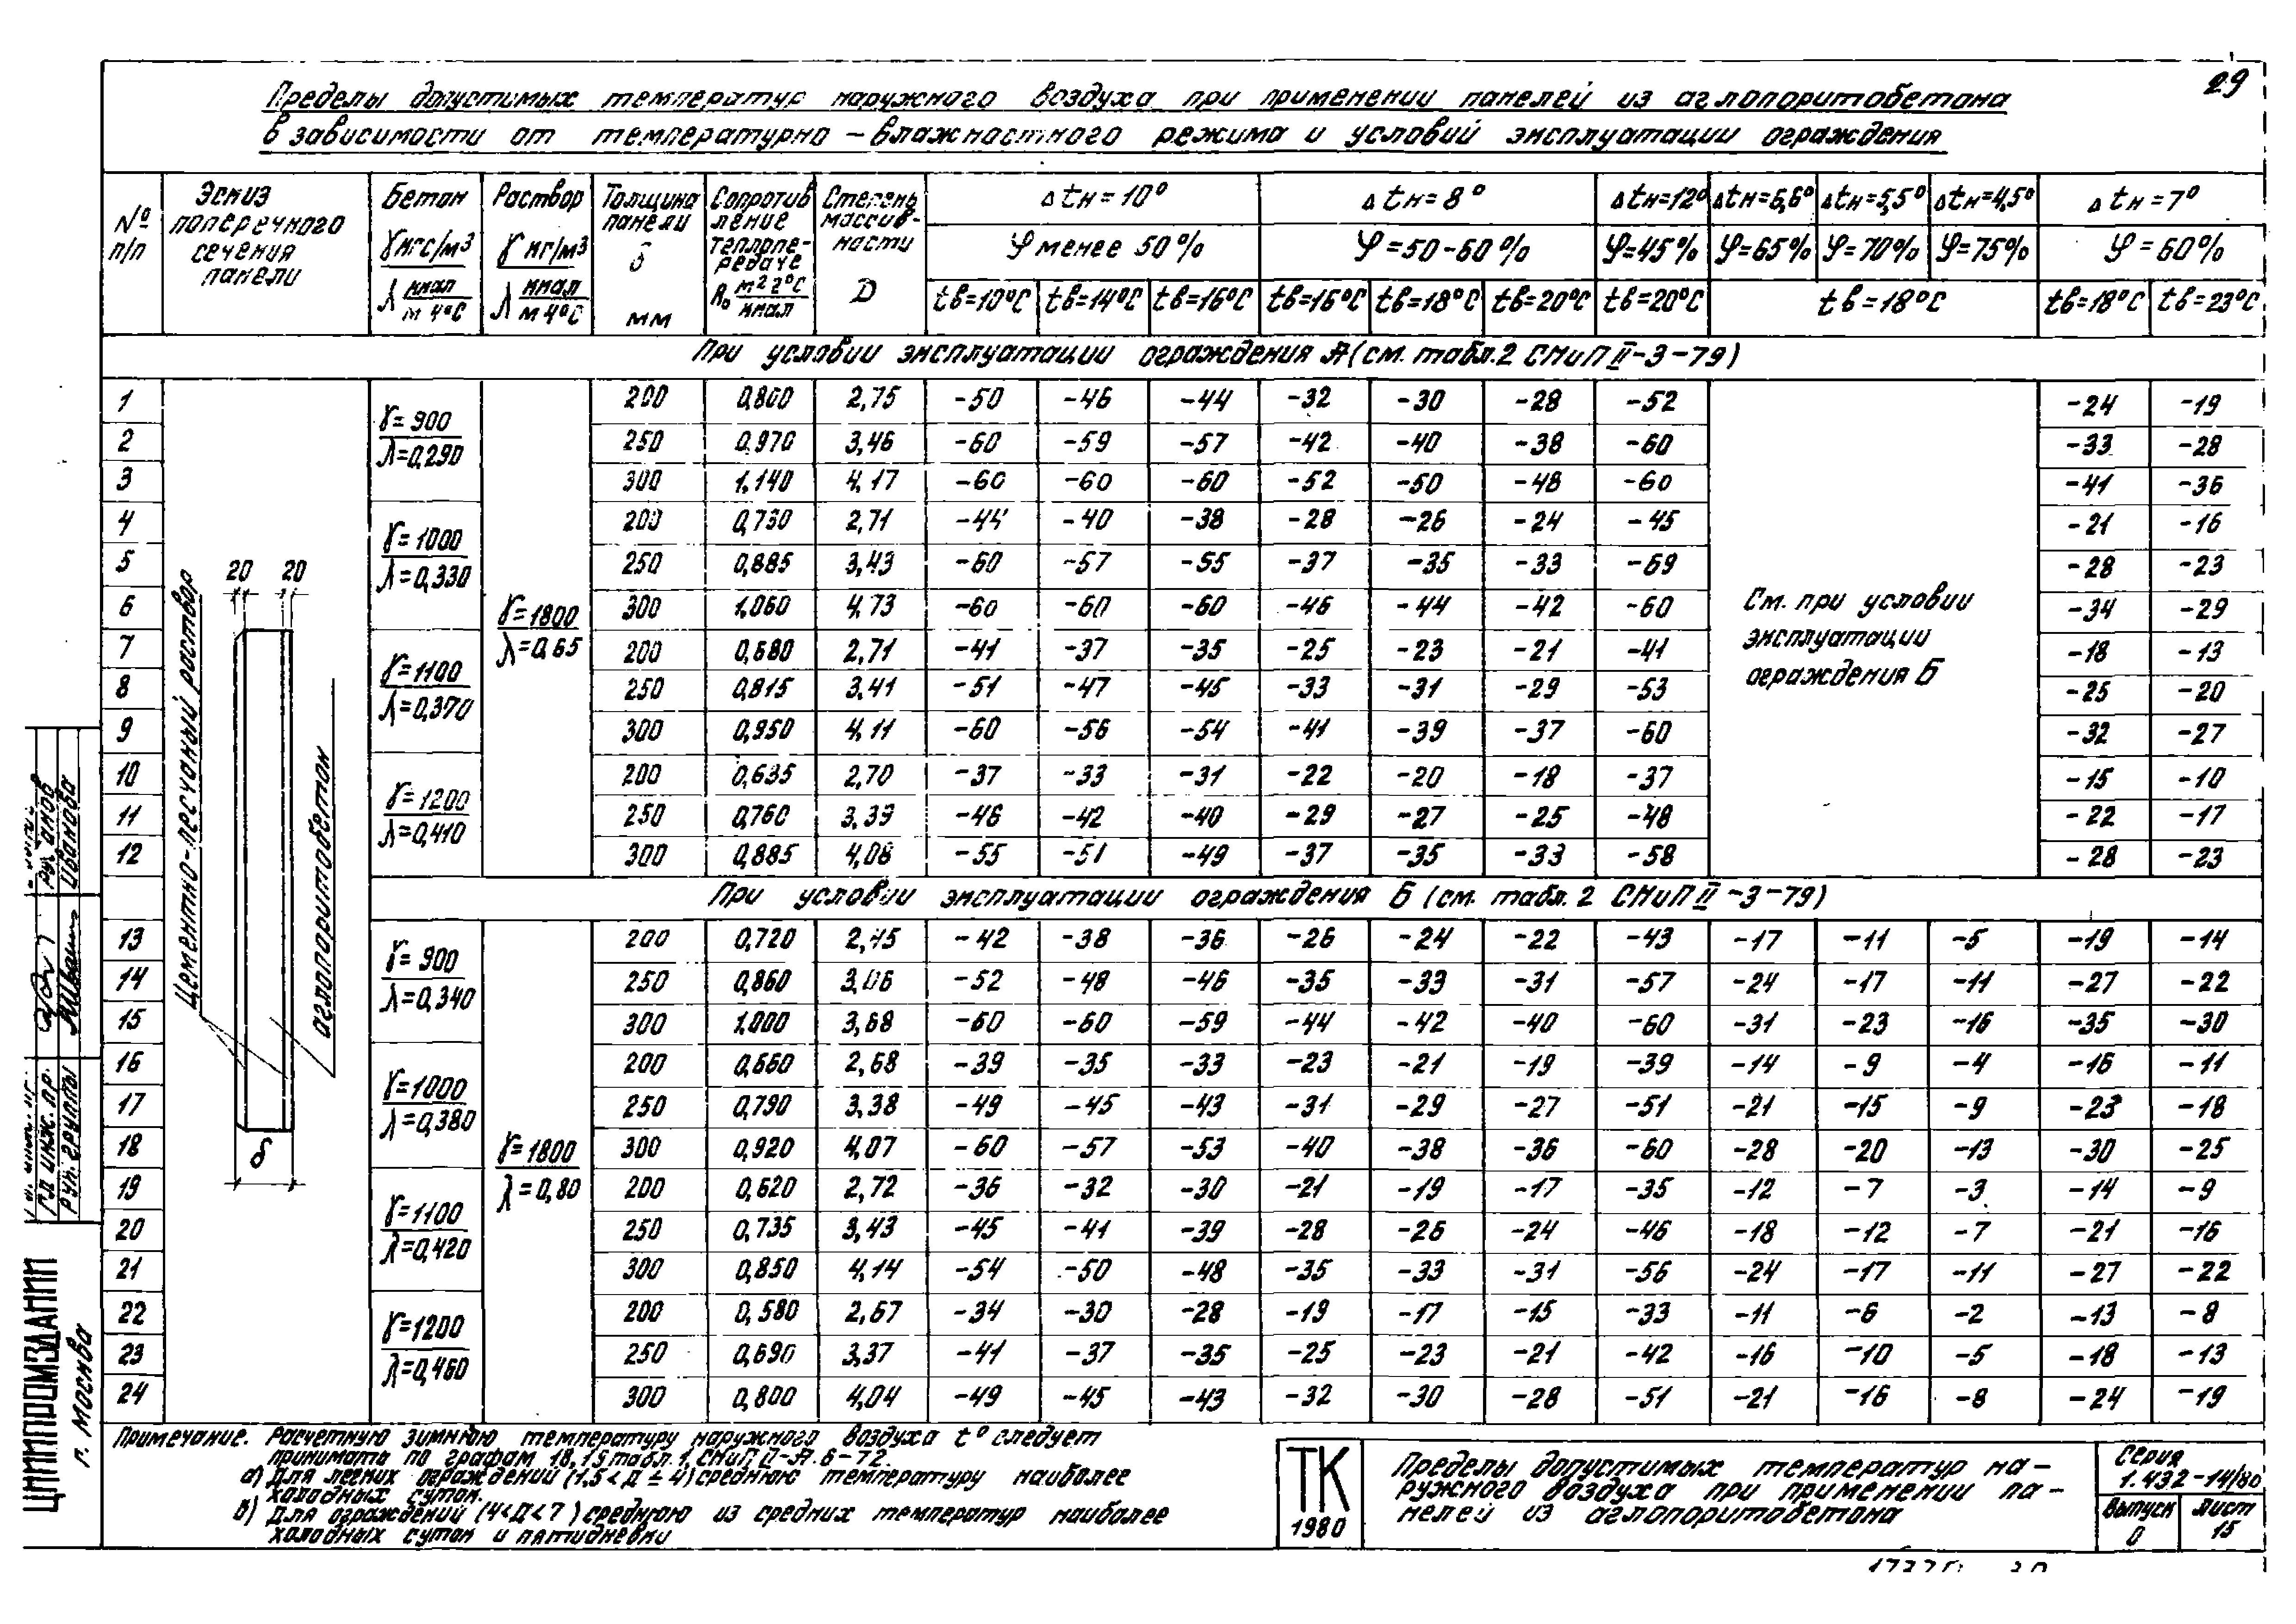 29
Пределы допустимых температур наружного воздуха при применении панелей из аглопоритобетона
в зависимости от температурно-влажностного режима и условий эксплуатации ограждения
№ п/п
Эскиз поперечного сечения панели
Бетон γ кгс/м³ λ ккал/м ч°С
Раствор γ кг/м³ λ ккал/м ч°С
Толщина панели δ мм
Сопротивление теплопередаче R₀ м² ч°С/ккал
Степень массивности D
Δtн=10° Δtн=8° Δtн=12° Δtн=6,6° Δtн=5,5° Δtн=4,5° Δtн=7°
φ менее 50% φ=50-60% φ=45% φ=65% φ=70% φ=75% φ=60%
tв=10°С tв=14°С tв=16°С tв=16°С tв=18°С tв=20°С tв=20°С tв=18°С tв=18°С tв=23°С
При условии эксплуатации ограждения А (см. табл. 2 СНиП II-3-79)
1 200 0,800 2,75 -50 -46 -44 -32 -30 -28 -52 -24 -19
γ=900
λ=0,290
2 250 0,970 3,46 -60 -59 -57 -42 -40 -38 -60 -33 -28
3 300 1,140 4,17 -60 -60 -60 -52 -50 -48 -60 -41 -36
4 200 0,730 2,71 -44 -40 -38 -28 -26 -24 -45 -21 -16
γ=1000
λ=0,330
5 250 0,885 3,43 -60 -57 -55 -37 -35 -33 -69 -28 -23
6 300 1,060 4,73 -60 -60 -60 -46 -44 -42 -60 -34 -29
γ=1800
λ=0,65
См. при условии
эксплуатации
ограждения Б
7 200 0,680 2,71 -41 -37 -35 -25 -23 -21 -41 -18 -13
γ=1100
λ=0,370
8 250 0,815 3,41 -51 -47 -45 -33 -31 -29 -53 -25 -20
9 300 0,950 4,11 -60 -56 -54 -41 -39 -37 -60 -32 -27
10 200 0,635 2,70 -37 -33 -31 -22 -20 -18 -37 -15 -10
γ=1200
λ=0,410
11 250 0,760 3,39 -46 -42 -40 -29 -27 -25 -48 -22 -17
12 300 0,885 4,08 -55 -51 -49 -37 -35 -33 -58 -28 -23
20 20
Цементно-песчаный раствор
аглопоритобетон
δ
При условии эксплуатации ограждения Б (см. табл. 2 СНиП II-3-79)
13 200 0,720 2,45 -42 -38 -36 -26 -24 -22 -43 -17 -11 -5 -19 -14
γ=900
λ=0,340
14 250 0,860 3,06 -52 -48 -46 -35 -33 -31 -57 -24 -17 -11 -27 -22
15 300 1,000 3,68 -60 -60 -59 -44 -42 -40 -60 -31 -23 -16 -35 -30
16 200 0,660 2,68 -39 -35 -33 -23 -21 -19 -39 -14 -9 -4 -16 -11
γ=1000
λ=0,380
17 250 0,790 3,38 -49 -45 -43 -31 -29 -27 -51 -21 -15 -9 -23 -18
18 300 0,920 4,07 -60 -57 -53 -40 -38 -36 -60 -28 -20 -13 -30 -25
γ=1800
λ=0,80
19 200 0,620 2,72 -36 -32 -30 -21 -19 -17 -35 -12 -7 -3 -14 -9
γ=1100
λ=0,420
20 250 0,735 3,43 -45 -41 -39 -28 -26 -24 -46 -18 -12 -7 -21 -16
21 300 0,850 4,14 -54 -50 -48 -35 -33 -31 -56 -24 -17 -11 -27 -22
22 200 0,580 2,67 -34 -30 -28 -19 -17 -15 -33 -11 -6 -2 -13 -8
γ=1200
λ=0,460
23 250 0,690 3,37 -41 -37 -35 -25 -23 -21 -42 -16 -10 -5 -18 -13
24 300 0,800 4,04 -49 -45 -43 -32 -30 -28 -51 -21 -16 -8 -24 -19
Примечание. Расчетную зимнюю температуру наружного воздуха t° следует
принимать по графам 18, 15 табл. 1, СНиП II-А. 6-72.
а) для легких ограждений (1,5<Д≤4) среднюю температуру наиболее
холодных суток.
в) для ограждений (4<Д<7) среднюю из средних температур наиболее
холодных суток и пятидневки
ТК
1980
Пределы допустимых температур на-
ружного воздуха при применении па-
нелей из аглопоритобетона
Серия
1.432-14/80
Выпуск
0
Лист
15
Гл инж. пр.
Рук. группы
Иванова
ЦНИИПРОМЗДАНИЙ
г. Москва